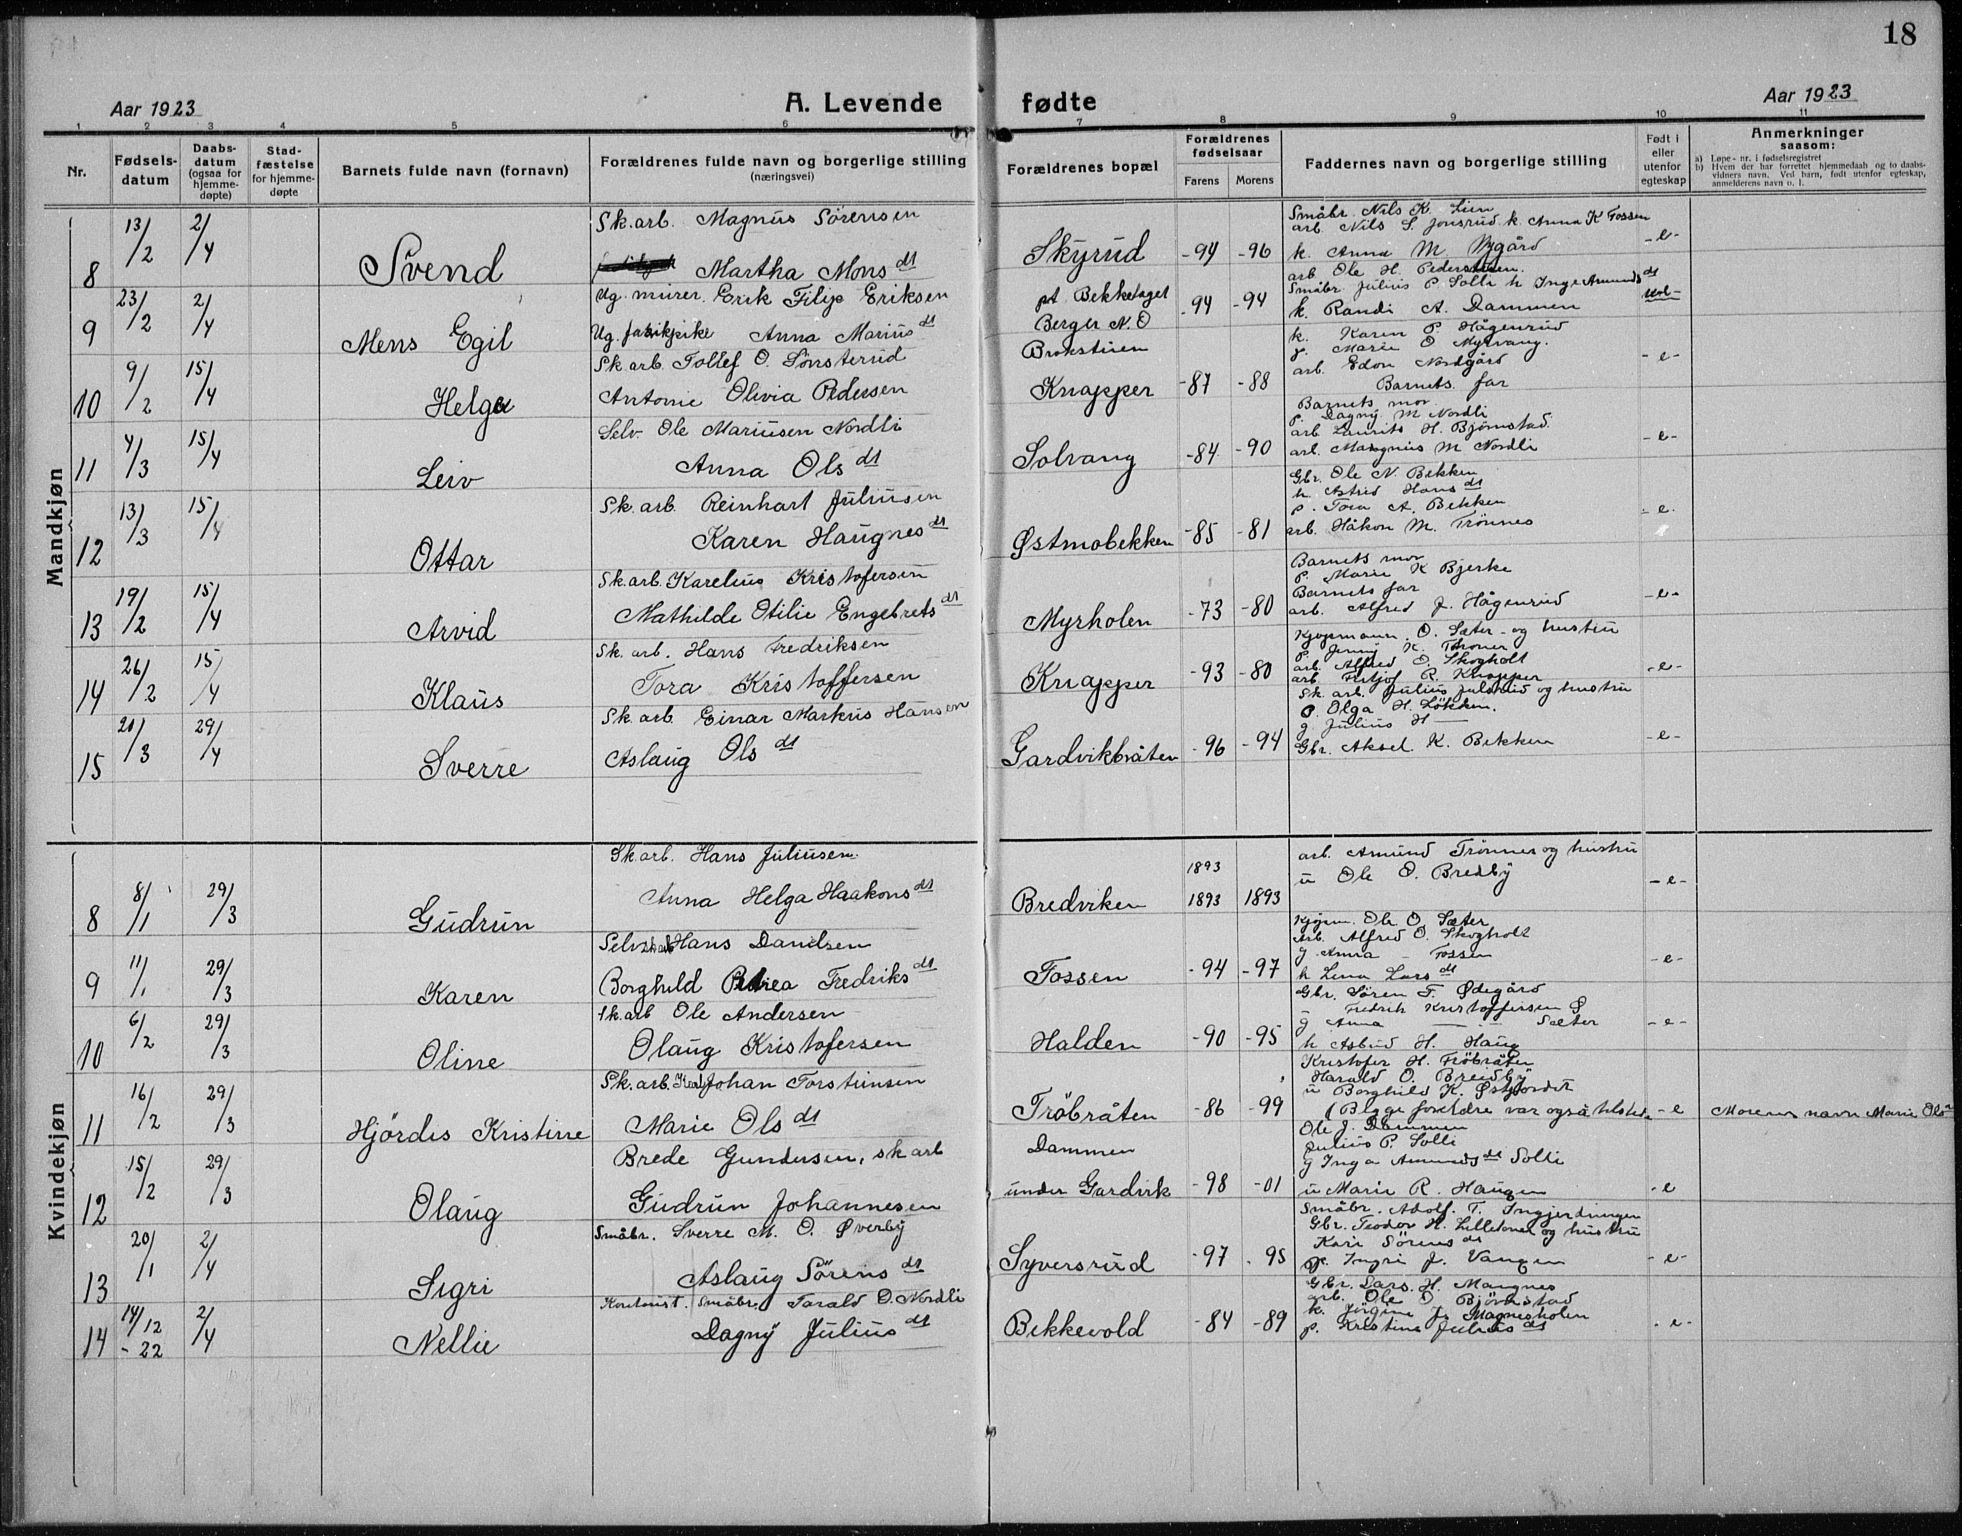 18
Aar 1923
A. Levende fødte
Aar 1923
1 2 3 4 5 6 7 8 9 10 11
Nr.
Fødselsdatum
Daabsdatum (ogsaa for hjemmedøpte)
Stadfæstelse for hjemmedøpte
Barnets fulde navn (fornavn)
Forældrenes fulde navn og borgerlige stilling (næringsvei)
Forældrenes bopæl
Forældrenes fødselsaar
Farens Morens
Faddernes navn og borgerlige stilling
Født i eller utenfor egteskap
Anmerkninger saasom:
a) Løpe-nr. i fødselsregistret
b) Hvem der har forrettet hjemmedaab og to daabsvidners navn. Ved barn, født utenfor egteskap, anmelderens navn o. l.
Mandkjøn
8 13/2 2/4 Svend
Sk.arb. Magnus Sørensen
Martha Mons dt
Skyrud -94 -96
Småbr. Nils K. Lien
arb. Nils S. Jonsrud k. Anna K Fossen
k. Anna M. Nygård
arb. Ole H. Pedersen
-e-
9 23/2 2/4 Mens Egil
Ug. murer. Erik Filip Eriksen
Ug. fabrikpike Anna Marius dt
pt. Bekkelaget
Berger N. O
Brokstuen
-94 -94
Småbr Julius P. Solli h Inge Amunds dt
k. Randi A. Dammen
k. Karen P. Hågenrud
g. Marie O Myrvang.
10 9/2 15/4 Helge
Sk arb. Tollef O. Sønsterud
Antonie Olivia Pedersen
Knapper -87 -88
arb. Edon Nordgård
Barnets far
Barnets mor
p. Dagny M Nordli
-e-
11 4/3 15/4 Leiv
Selv. Ole Mariusen Nordli
Anna Ols dt
Solvang -84 -90
arb Laurits H. Bjørnstad
arb. Magnus M Nordli
-e-
12 13/3 15/4 Ottar
Sk. arb. Reinhart Juliusen
Karen Haugnes dt
Østmobekken -85 -81
Gbr. Ole N. Bekken
h. Astrid Hans dt
p. Tora A. Bekken
arb. Håkon M. Trønnes
-e-
13 19/2 15/4 Arvid
Sk arb. Karelius Kristofersen
Mathilde Otilie Engebrets dt
Myrholen -73 -80
Barnets mor
p. Marie K Bjerke
Barnets far
arb. Alfred J. Hågenrud
-e-
14 26/2 15/4 Klaus
Sk. arb. Hans Fredriksen
Tora Kristoffersen
Knapper -93 -80
Kjøpmann O. Sæter og hustru
p. Jenny K. Throner
arb. Alfred O. Skogholt
arb Fritjof R. Knapper
-e-
15 20/3 29/4 Sverre
Sk arb Einar Markus Hansen
Aslaug Ols dt
Gardvikbråten -96 -94
Sk. arb. Julius Julsrud og hustru
p. Olga H. Løkken.
g Julius H —
Gbr. Aksel K. Bekken
-e-
Kvindekjøn
8 8/1 29/3 Gudrun
Sk arb. Hans Juliusen
Anna Helga Haakons dt
Bredviken
1893
1893 1893
arb. Amund Trønnes og hustru
u Ole O. Bredby
-e-
9 11/1 29/3 Karen
Selv Hans Danilsen
Borghild Petrea Fredriks dt
Fossen -94 -97
Kjøpm. Ole O. Sæter
Arb. Alfred O. Skogholt
g Anna — Fossen
h Lina Lars dt
-e-
10 6/2 29/3 Oline
Sk.arb Ole Andersen
Olaug Kristofersen
Halden -90 -95
Gbr. Søren F. Ødegård
Fredrik Kristoffersen
g Anna — Sæter
h Asbud H. Haug
-e-
11 16/2 29/3 Hjördis Kristine
Sk. arb. Karl Johan Torsteinsen
Marie Ols dt
Tröbråten -86 -99
Kristofer H. Tröbråten
Harald O. Breidby
u Borghild K. Østfjordet
(Begge foreldre var også tilstede
-e Morens navn Marie Ols dt
12 15/2 29/3 Olaug
Brede Gundersen, sk arb
Gudrun Johannesen
Dammen
under Gardvik -98 -01
Ole J. Dammen
Julius P. Solli
g Inga Amunds dt Solli
u Marie R. Haugen
-e
13 20/1 2/4 Sigri
Småbr. Sverre M. O. Øverby
Aslaug Sörens dt
Syversrud -97 -95
Småbr. Adolf T. Ingjerdningen
Gbr. Teodor H. Lilletoner og hustru
Kari Sörens dt
p. Ingri J. Vangen
-e-
14 14/12 -22 2/4 Nellie
Kontorist. Småbr Tarald O. Nordli
Dagny Julius dt
Bekkevold -84 -89
Gbr. Lars H. Mangnes
arb. Ole O Bjørnstad
k. Jörgine J. Magnesholen
p. Kristine Julius dt
-e-